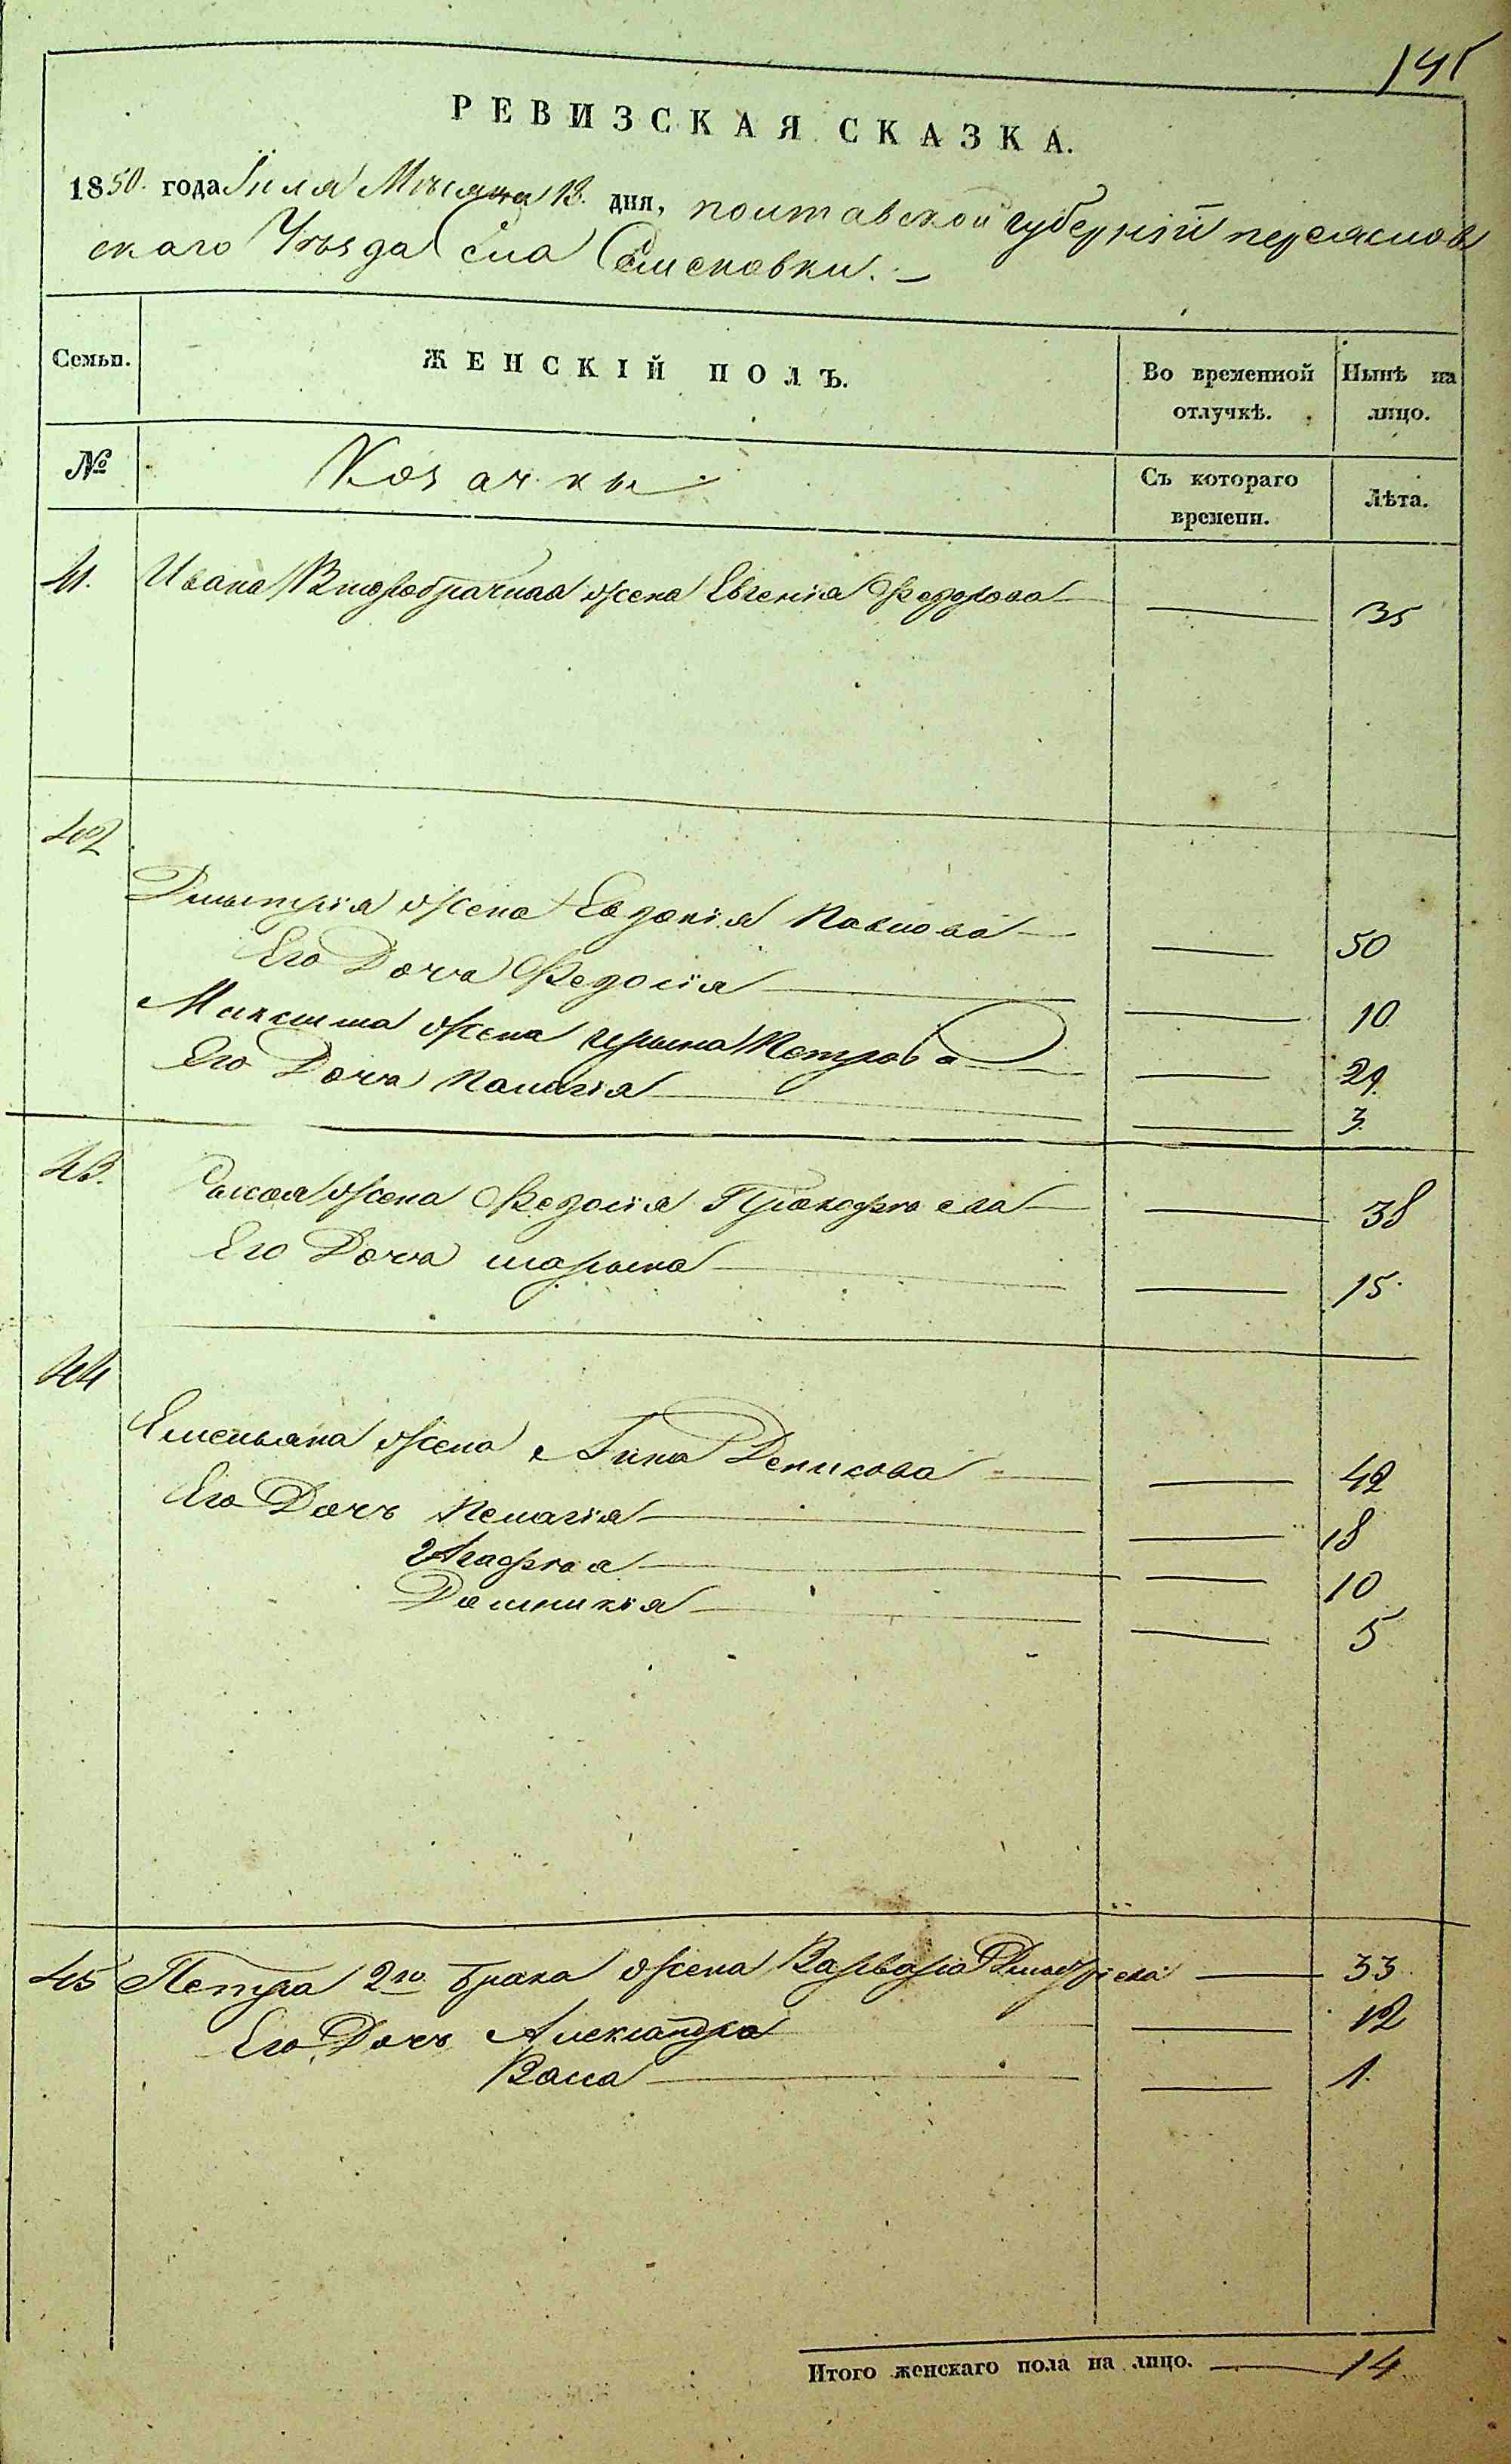 145
РЕВИЗСКАЯ СКАЗКА.
1850. года Іюля Мѣсяца 13. дня, полтавской губерніи переяслов
скаго Уѣзда Села
Семьи. ЖЕНСКІЙ ПОЛЪ. Во временной отлучкѣ. Нынѣ на лицо.
№ Козачки Съ котораго времени. Лѣта.
41. Ивана Второбрачная жена Евгенія Федорова — 35
42
Дмытрія жена Евдокія Павлова — 50
Его Доча Федосія — 10
Максима жена Ирына Петрова — 29.
Его Доча Палагія — 3.
43. жена Федосія Прокофьева — 38
Его Доча марына — 15.
44
Емельяна жена Анна Денисова — 42
Его Дочъ Пелагія — 18
Агафья — 10
Домникія — 5
45 Петра 2го брака жена Варвара Дмытріева — 33.
Его Дочъ Александра — 12
Васса — 1.
Итого женскаго пола на лицо. — 14